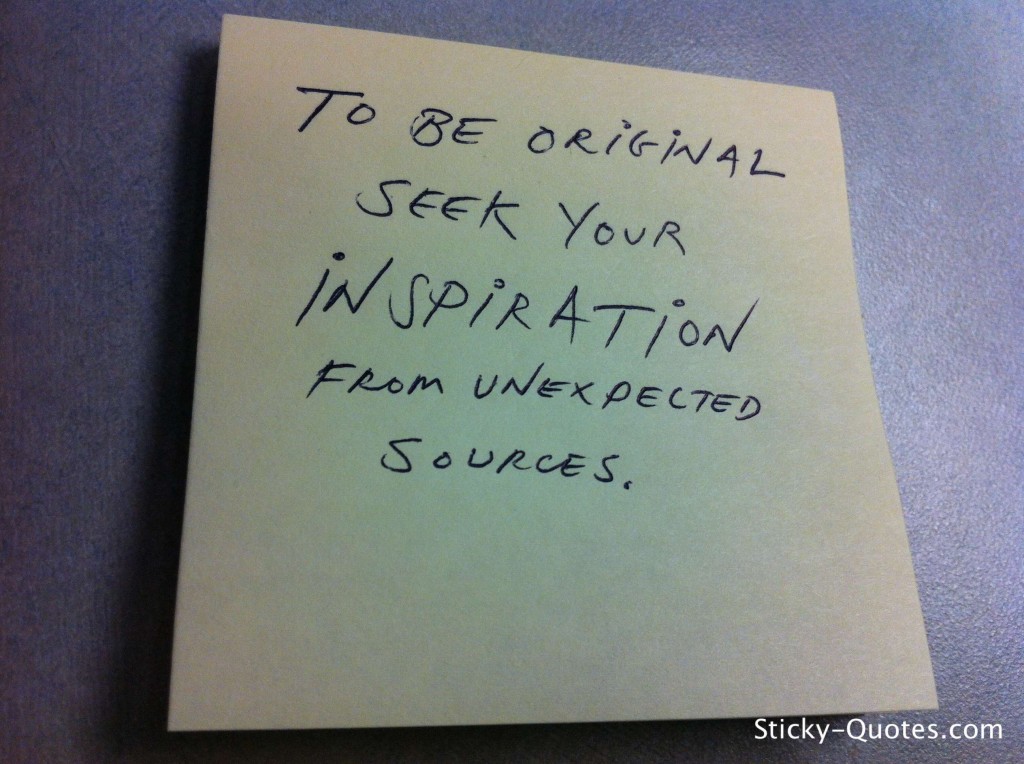 TO BE ORiGiNAL
SEEK YOUR
iNSPiRATiON
FROM UNEXPECTED
SOURCES.
Sticky-Quotes.com